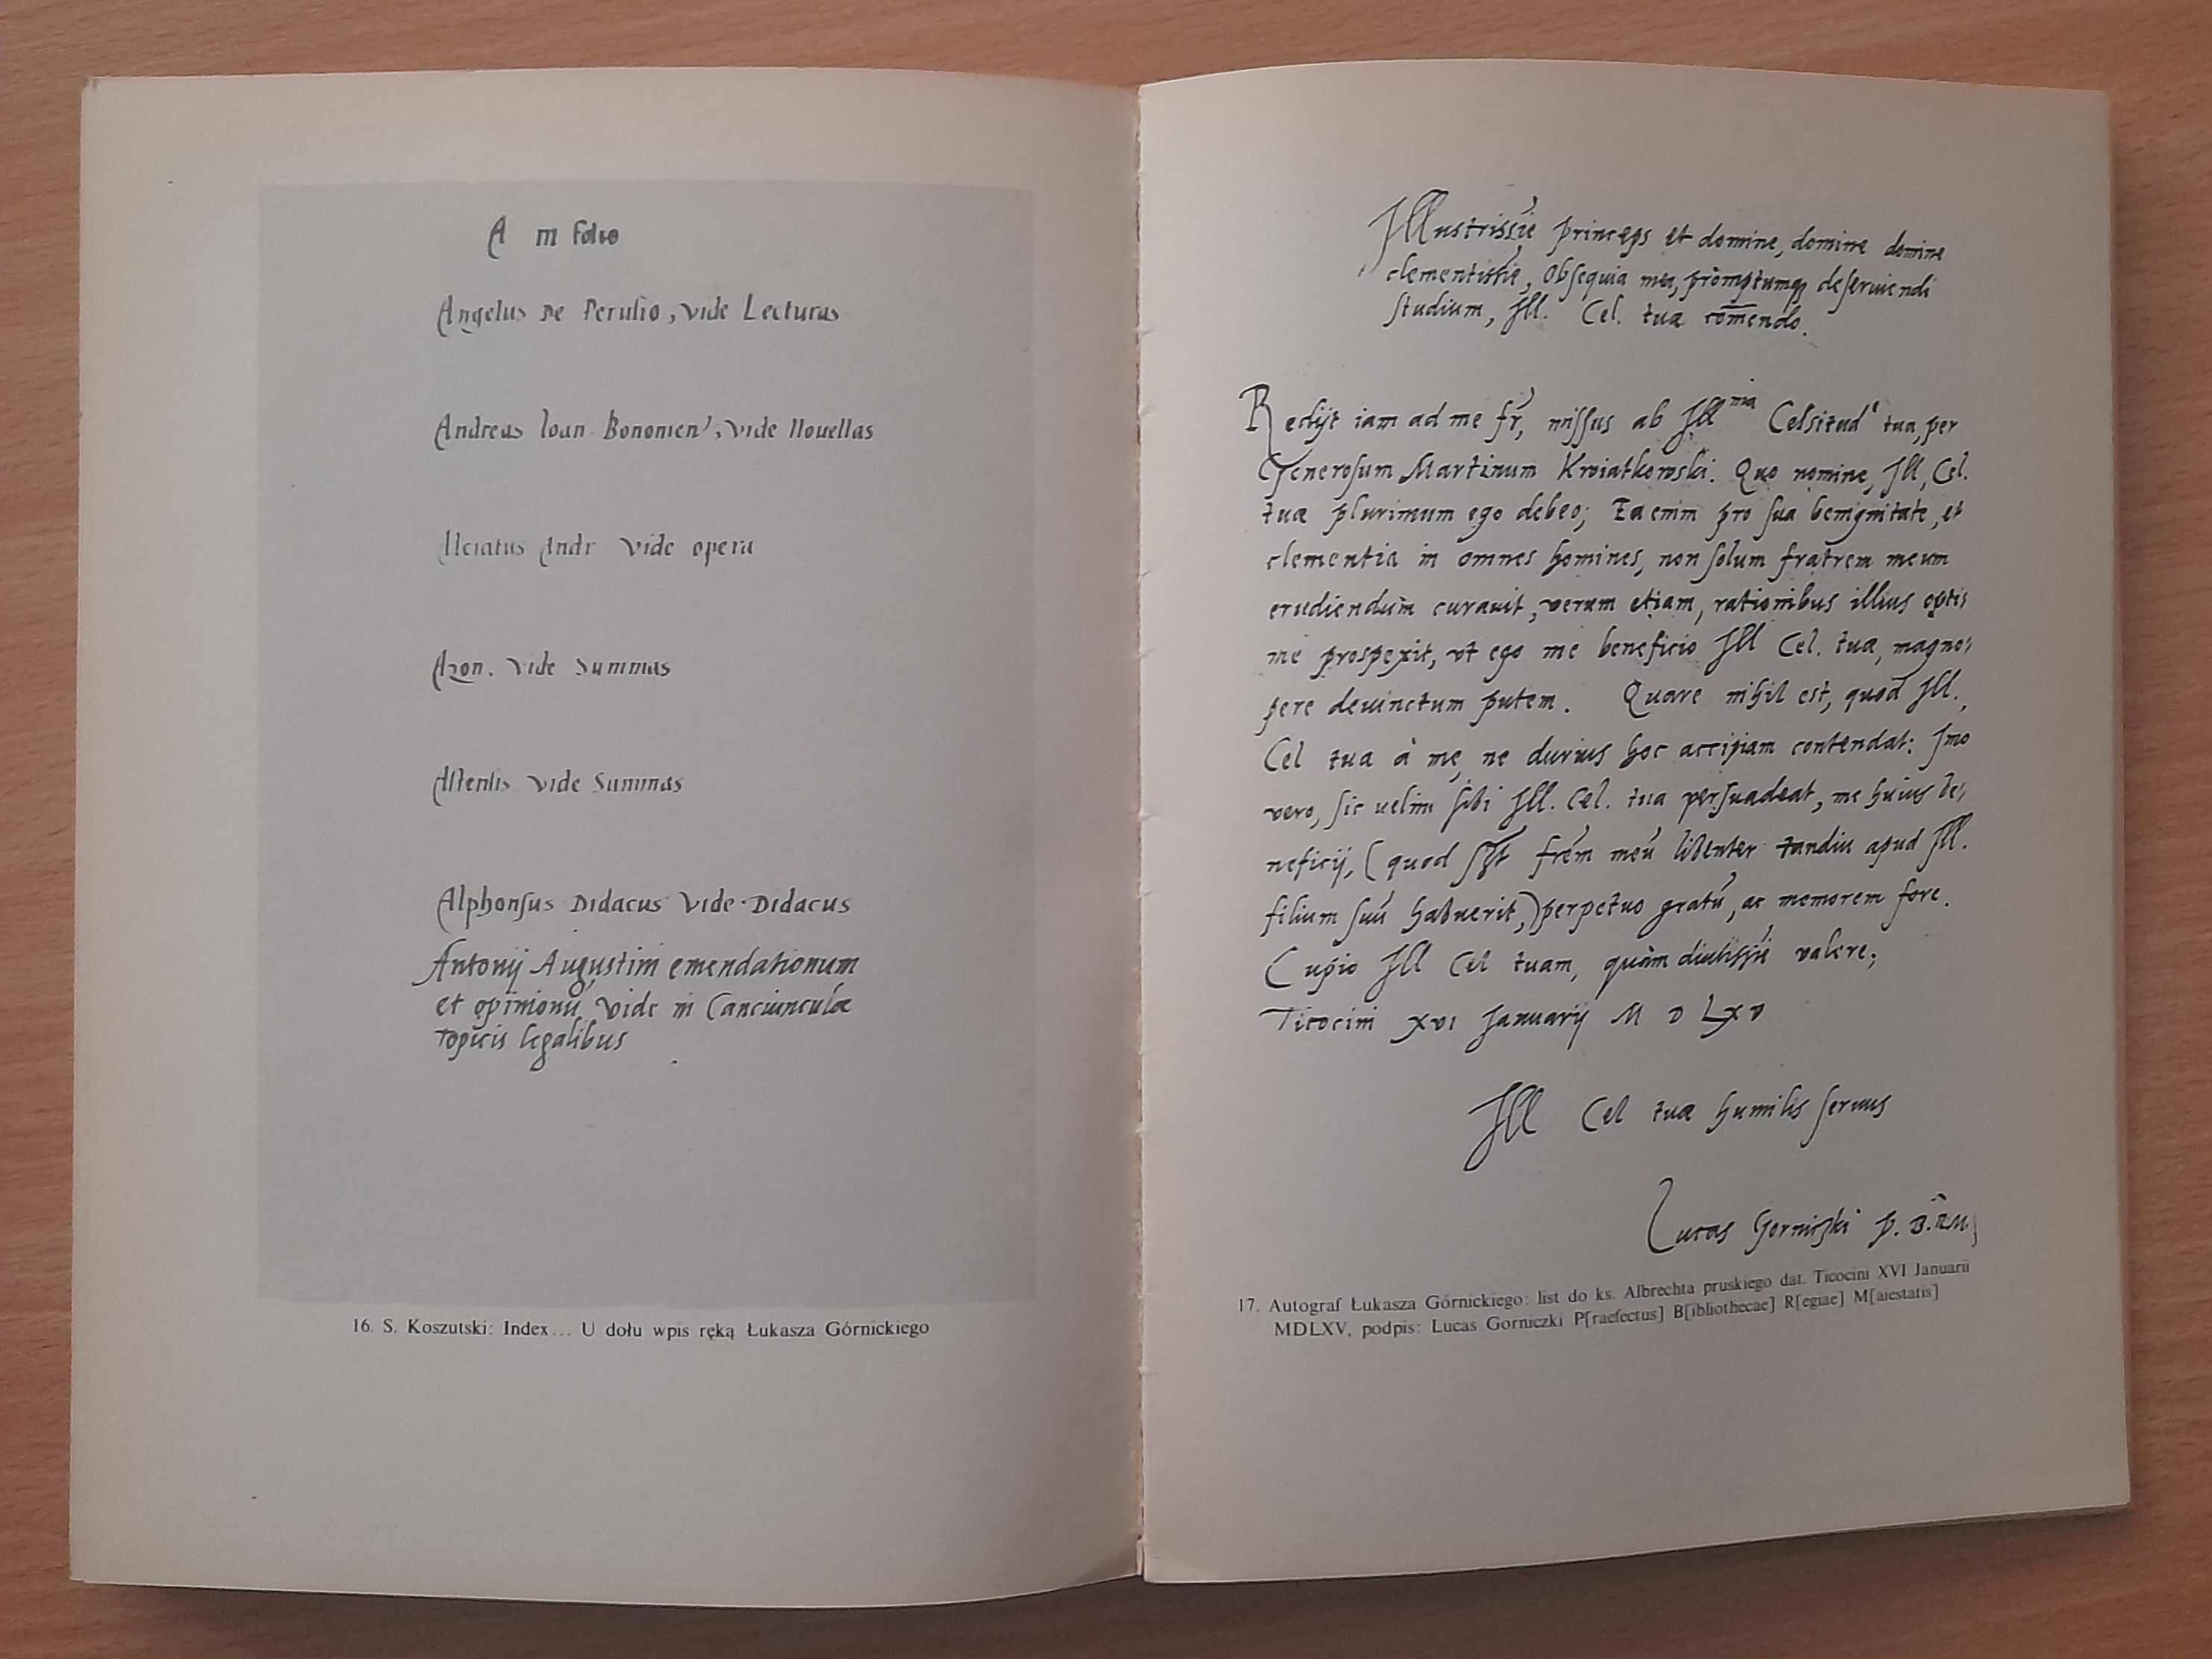 A in folio
Angelus De Perusio, vide Lecturas
Andreas Ioan Bononien', vide Nouellas
Alciatus Andr vide opera
Azon. vide Summas
Astensis vide Summas
Alphonſus Didacus vide Didacus
Antonij Augustini emendationum
et opinionū vide in Canciunculæ
topicis legalibus
16. S. Koszutski: Index... U dołu wpis ręką Łukasza Górnickiego
Jllustrissīe princeps et domine, domine domine
clementissīe, Obſequia mea, promptumq; deſeruiendi
ſtudium, Jll. Cel. tuæ com̄endo.
Redijt iam ad me fr̄, miſſus ab Jllma Celsitud' tua, per
Generoſum Martinum Kwiatkowski. Quo nomine, Jll, Cel.
tuæ plurimum ego debeo; Ea enim pro ſua benignitate, et
clementia in omnes homines, non ſolum fratrem meum
erudiendum curauit, verum etiam, rationibus illius opti:
me prospexit, vt ego me beneficio Jll Cel. tuæ, magno:
pere deuinctum putem. Quare nihil est, quod Jll.,
Cel tua à me, ne durius hoc accipiam contendat: Jmo
vero, ſic uelim ſibi Jll. Cel. tua perſuadeat, me huius be:
neficij, (quod frēm meū libenter tandiu apud Jll.
filium ſuū habuerit,) perpetuo gratū, ac memorem fore.
Cupio Jll Cel tuam, quàm diutissīe valere;
Ticocini xvi Januarij M D Lxv
Jll Cel tuæ humilis ſeruus
Lucas Gorniczki p. B. R M.
17. Autograf Łukasza Górnickiego: list do ks. Albrechta pruskiego dat. Ticocini XVI Januarii
MDLXV, podpis: Lucas Gorniczki P[raefectus] B[ibliothecae] R[egiae] M[aiestatis]